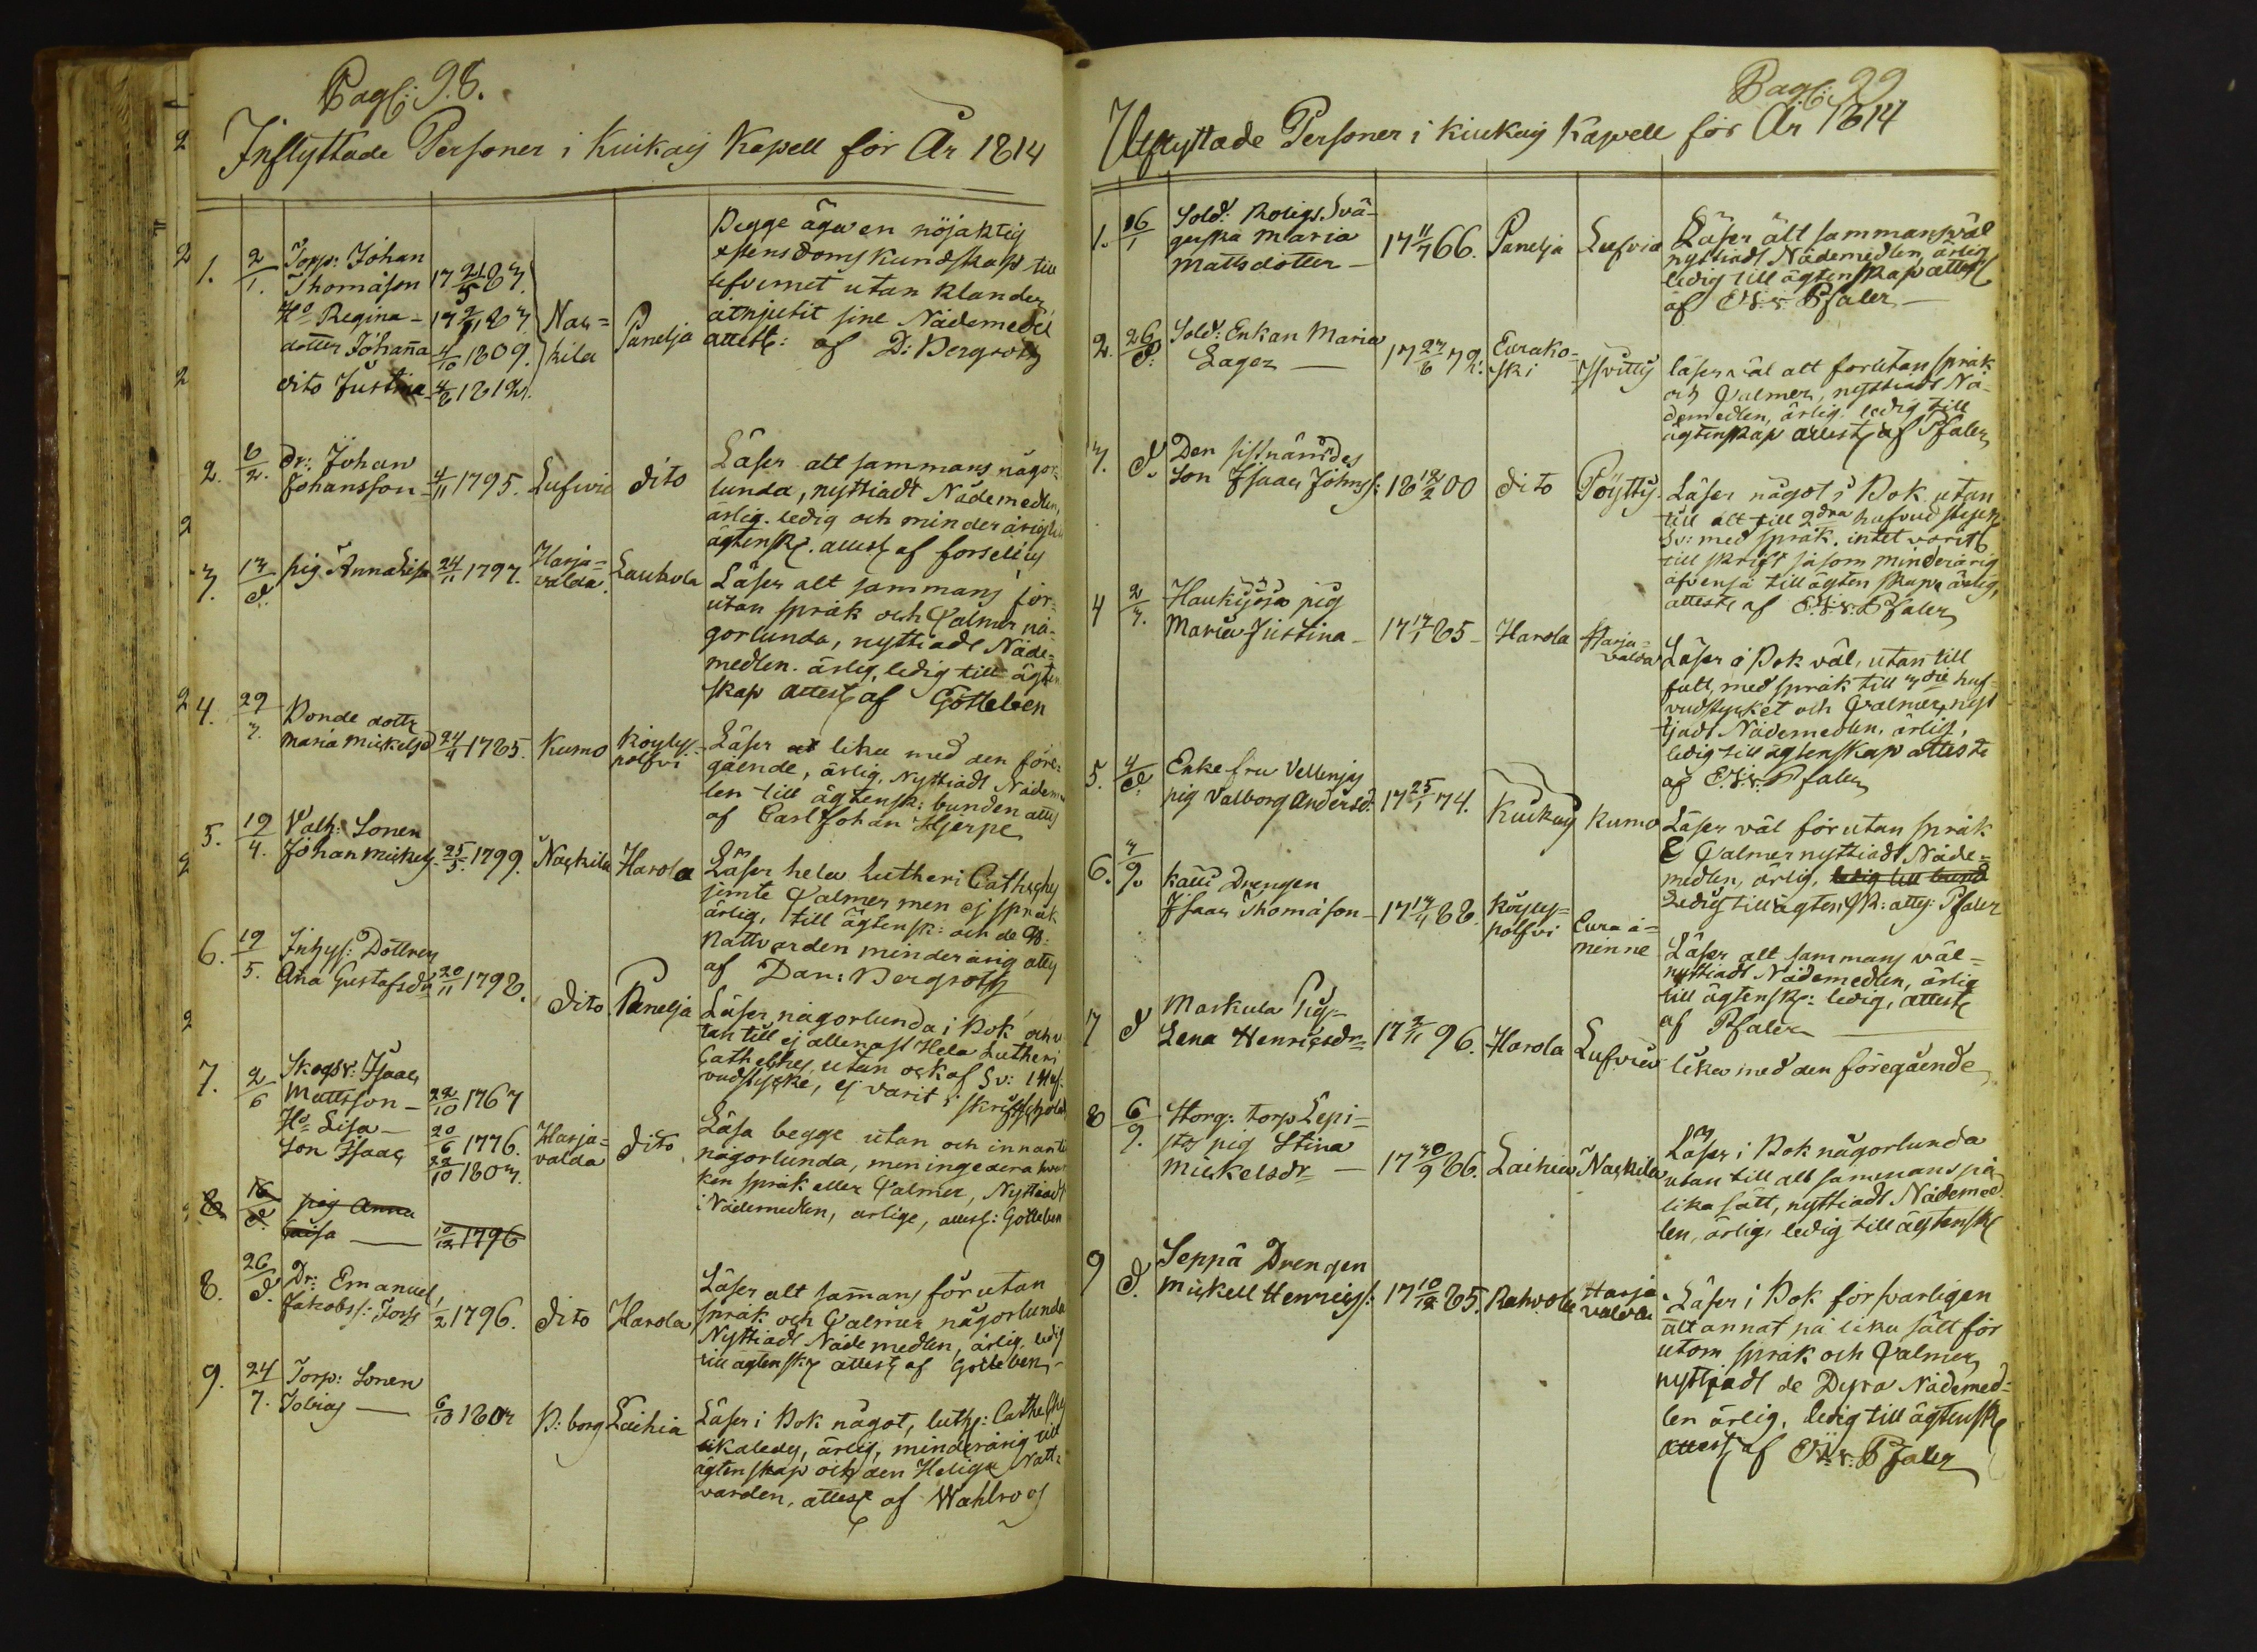 Pag: 98.
Inflyttade Personer i Kiukais Kapell för År 1814
1. 2/1. Torp: Johan
Thomasson 17 21/5 87.
Ho Regina - 17 87.
dotter Johana 4/10 1809.
dito Justina 4/6 1812.
Nac=
kila
Panelja
Begge äga en nöjaktig
kundskap till
lefvernet utan klander
åtnjutit sine Nådemedel
attest: af D: Bergroth
2. 6/2. dr: Johan
Johansson - 4/11 1795. Lufvia dito
Läser alt sammans någor=
lunda, nyttiadt Nådemedlen,
ärlig. ledig och minderårig till
ägtensk. attest af Forselius
3. 13/d. pig Anna Lisa 24/11 1797. Harja=
valda. Laukola
Läser alt sammans för=
utan språk och Psalmer nå=
gorlunda, nyttiadt Nåde=
medlen. ärlig, ledig till ägten
skap attest af Gottleben
4. 29/3. Bonde dottr
Maria Mickelsd 24/4 1785. Kumo Köyly
polfvi
Läser lika med den före=
gående, ärlig, Nyttiadt Nådemed
len till ägtensk: bunden attest
af Carl Johan Hjerpe
5. 19/4. Valh: Sonen
Johan Mickels. 25/3. 1799. Nackila Harola
Läser hela Lutheri Cathechs
jemte Psalmer men ej språk
ärlig, till ägtensk: och
Nattvarden minderårig attest
af Dan: Bergroth
6. 19/5. Inhys: Dottren
Ana Gustafsdr 20/11 1798. dito Panelja
Läser någorlunda i Bok och u
tan till ej allenast Hela Lutheri
Cathekes, utan ock af Sv: 1 Huf=
vudstycke, ej varit i skriftskola
7. 2/6 Skogsv: Isaac
Mattsson - 22/10 1767
Ho Lisa - 20/6 1776.
Son Isaac 22/10 1803.
Harja=
valda dito
Läsa begge utan och innantill
någorlunda, men ingendera hvar
ken språk eller Psalmer, Nyttiadt
Nådemedlen, ärlige, attest: Gottleben
8 16/d. pig Anna
Caisa 10/12 1796
8. 26/d. Dr: Emanuel
Jakobss: 1/2 1796. dito Harola
Läser alt samans förutan
språk och Psalmer någorlunda
Nyttiadt Nådemedlen, ärlig, ledig
till ägtensk attest af Gottleben
9. 24/7. Torp: Sonen
Tobias 6/10 B:borg Laihia
Läser i Bok något, luths: Cathes
likaledes, ärlig, minderårig till
ägtenskap och den Heliga Natt=
varden, attest af Wahlroos
Pag: 99
Utflyttade Personer i Kiukais Kapell för År 1814
1. 16/1 Sold: Roligs Svä-
gerska Maria
Mattsdotter - 17 11/7 66. Panelja Lufvia
Läser alt sammans väl
nyttiadt Nådemedlen, ärlig
ledig till ägtenskap attest
af E: v: Pfaler
2. 26/d: Sold: Enkan Maria
Lager 17 23/6 72. Eurako=
ski
läser väl alt förutan språk
och Psalmer, nyttiadt Nå=
demedlen, ärlig. ledig till
ägtenskap attest af Pfaler
3. d. Den sistnämdes
Son Isaac Johnss: 18 12/2 00 dito Pöyttis
Läser något i Bok, utan
till alt till 2dra hufvudstycket
Sv: med språk. intet varit
till skrift såsom minderårig
äfvenså till ägtenskap ärlig,
attest af E: v: Pfaler
4 2/3. Haukijoja pig
Maria Justina - 17 17/1 85 - Harola Harja=
valda
Läser i Bok väl, utan till
fult, med språk till 3die huf=
vudstycket och Psalmer, nyt
tjadt Nådemedlen, ärlig,
ledig till ägtenskap attest
af E: v: Pfaler
5. 4/d. Enkefru Vellenjus
pig Valborg Andersd. 17 25/1 74. Kiukais Kumo
Läser väl förutan språk
& Psalmer nyttiadt Nåde=
medlen, ärlig, ledig till bund
Ledig till ägtensk: atts: Pfaler
6. 7/9. Källi Drengen
Isaac Thomasson - 17 17/4 88. Köyly=
polfvi Eura å=
minne
Läser alt sammans väl=
nyttiadt Nådemedlen, ärlig
till ägtensk: ledig, attest
af Pfaler
7 d Maskula Pig
Lena Henricsdr 17 96. Harola Lufvia
lika med den föregående
8 6/9. Storg: torp
pig Stina
Mickelsdr - 17 30/9 86. Laihia Nackila
Läser i Bok någorlunda
utan till alt sammans på
lika sätt, nyttiadt Nådemed
len, ärlig, ledig till ägtensk
9 d. Seppä Drengen
Mickell Henricss: 17 10/12 85. Rahvola Harja
valda
Läser i Bok försvarligen
alt annat på lika sätt för
utom språk och Psalmer,
nyttjadt de Dyra Nådemed=
len ärlig, ledig till ägtensk
attest af E: v: Pfaler